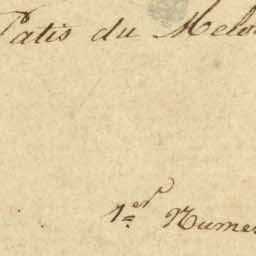 Patis du Melo
1er Nume